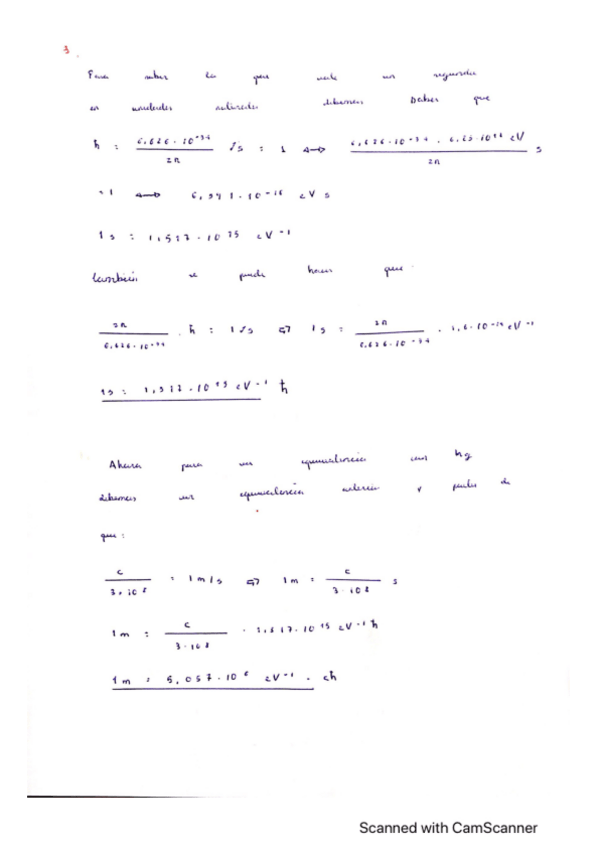 3.
Para saber lo que vale un segundo
en unidades naturales debemos saber que
ħ = 6,626·10⁻³⁴ / 2π J·s = 1 ↔ 6,626·10⁻³⁴ · 6,25·10¹⁸ eV / 2π s
= 1 ↔ 6,591·10⁻¹⁶ eV s
1 s = 1,517·10¹⁵ eV⁻¹
también se puede hacer que
2π / 6,626·10⁻³⁴ · ħ = 1 J s ⇔ 1 s = 2π / 6,626·10⁻³⁴ · 1,6·10⁻¹⁹ eV⁻¹
1s = 1,517·10¹⁵ eV⁻¹ ħ
Ahora para un equivalencia con kg
debemos un equivalencia anterior y partir de
que:
c / 3·10⁸ = 1 m/s ⇔ 1m = c / 3·10⁸ s
1m = c / 3·10⁸ · 1,517·10¹⁵ eV⁻¹ ħ
1m = 5,057·10⁶ eV⁻¹ · cħ
Scanned with CamScanner